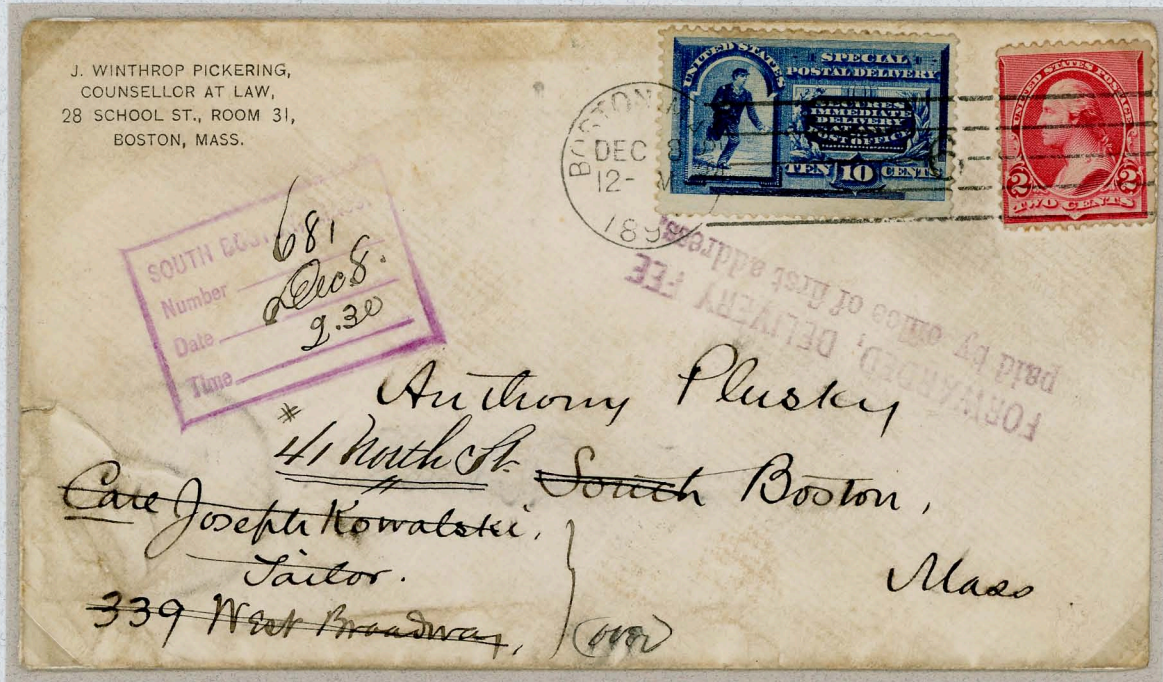 J. WINTHROP PICKERING,
COUNSELLOR AT LAW,
28 SCHOOL ST., ROOM 31,
BOSTON, MASS.
BOSTON
DEC 8
12- M
189
UNITED STATES
SPECIAL
POSTAL DELIVERY
SECURES
IMMEDIATE
DELIVERY
POST OFFICE
TEN 10 CENTS
UNITED STATES POSTAGE
2 2
TWO CENTS
SOUTH BOSTON
Number 681
Date Dec 8.
Time 2.30
FORWARDED, DELIVERY FEE
paid by office of first address
Anthony Plusky
41 North St. South Boston,
Care Joseph Kowalski,
Tailor.
Mass
339 West Broadway,
(over)